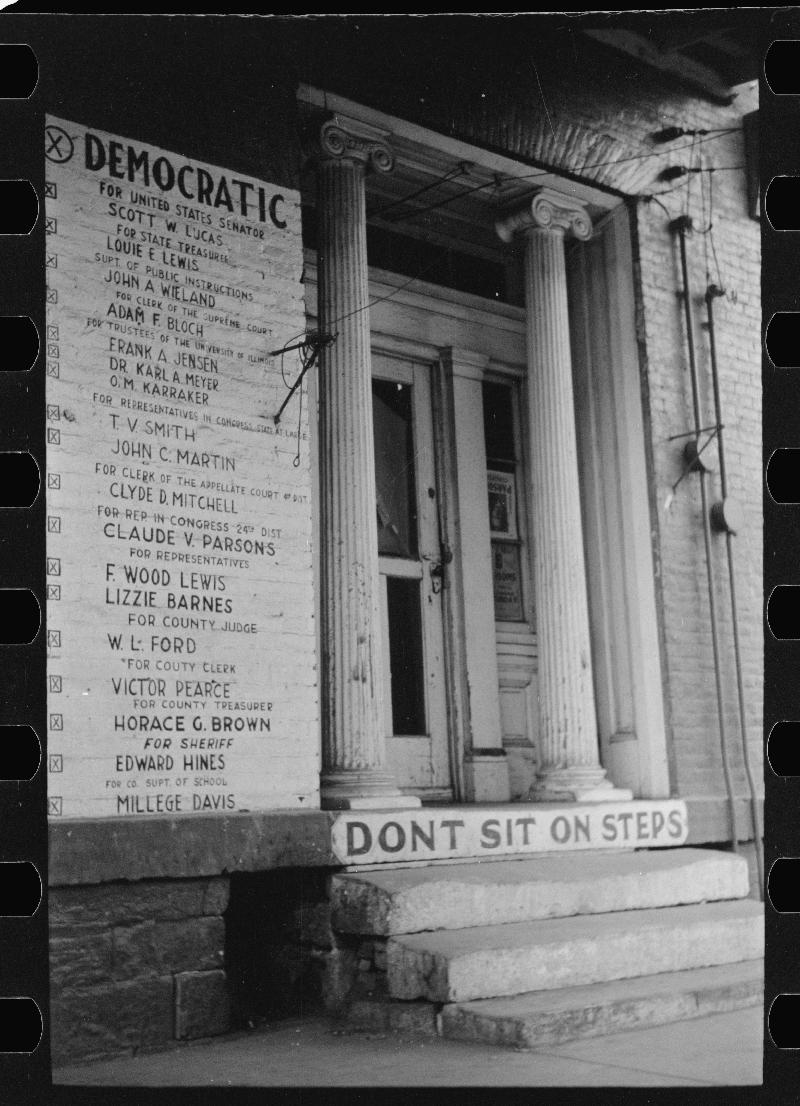 X DEMOCRATIC
FOR UNITED STATES SENATOR
X SCOTT W. LUCAS
FOR STATE TREASURER
X LOUIE E. LEWIS
SUPT. OF PUBLIC INSTRUCTIONS
X JOHN A. WIELAND
FOR CLERK OF THE SUPREME COURT
X ADAM F. BLOCH
FOR TRUSTEES OF THE UNIVERSITY OF ILLINOIS
X FRANK A. JENSEN
X DR. KARL A. MEYER
X O. M. KARRAKER
FOR REPRESENTATIVES IN CONGRESS STATE AT LARGE
X T. V. SMITH
X JOHN C. MARTIN
FOR CLERK OF THE APPELLATE COURT 4TH DIST.
X CLYDE D. MITCHELL
FOR REP. IN CONGRESS 24TH DIST
X CLAUDE V. PARSONS
FOR REPRESENTATIVES
X F. WOOD LEWIS
X LIZZIE BARNES
FOR COUNTY JUDGE
X W. L. FORD
FOR COUTY CLERK
X VICTOR PEARCE
FOR COUNTY TREASURER
X HORACE G. BROWN
FOR SHERIFF
X EDWARD HINES
FOR CO. SUPT. OF SCHOOL
X MILLEGE DAVIS
PARSONS
DONT SIT ON STEPS